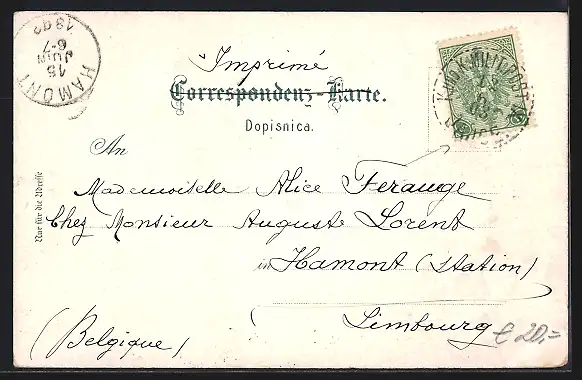 Imprimé
Correspondenz-Karte.
Dopisnica.
An
Mademoiselle Alice Ferauge
Chez Monsieur Auguste Lorent
in Hamont (Station)
Limbourg
(Belgique)
€ 20,=
Nur für die Adresse
HAMONT
15
JUIN
6-7
K.UND K. MILIT. POST